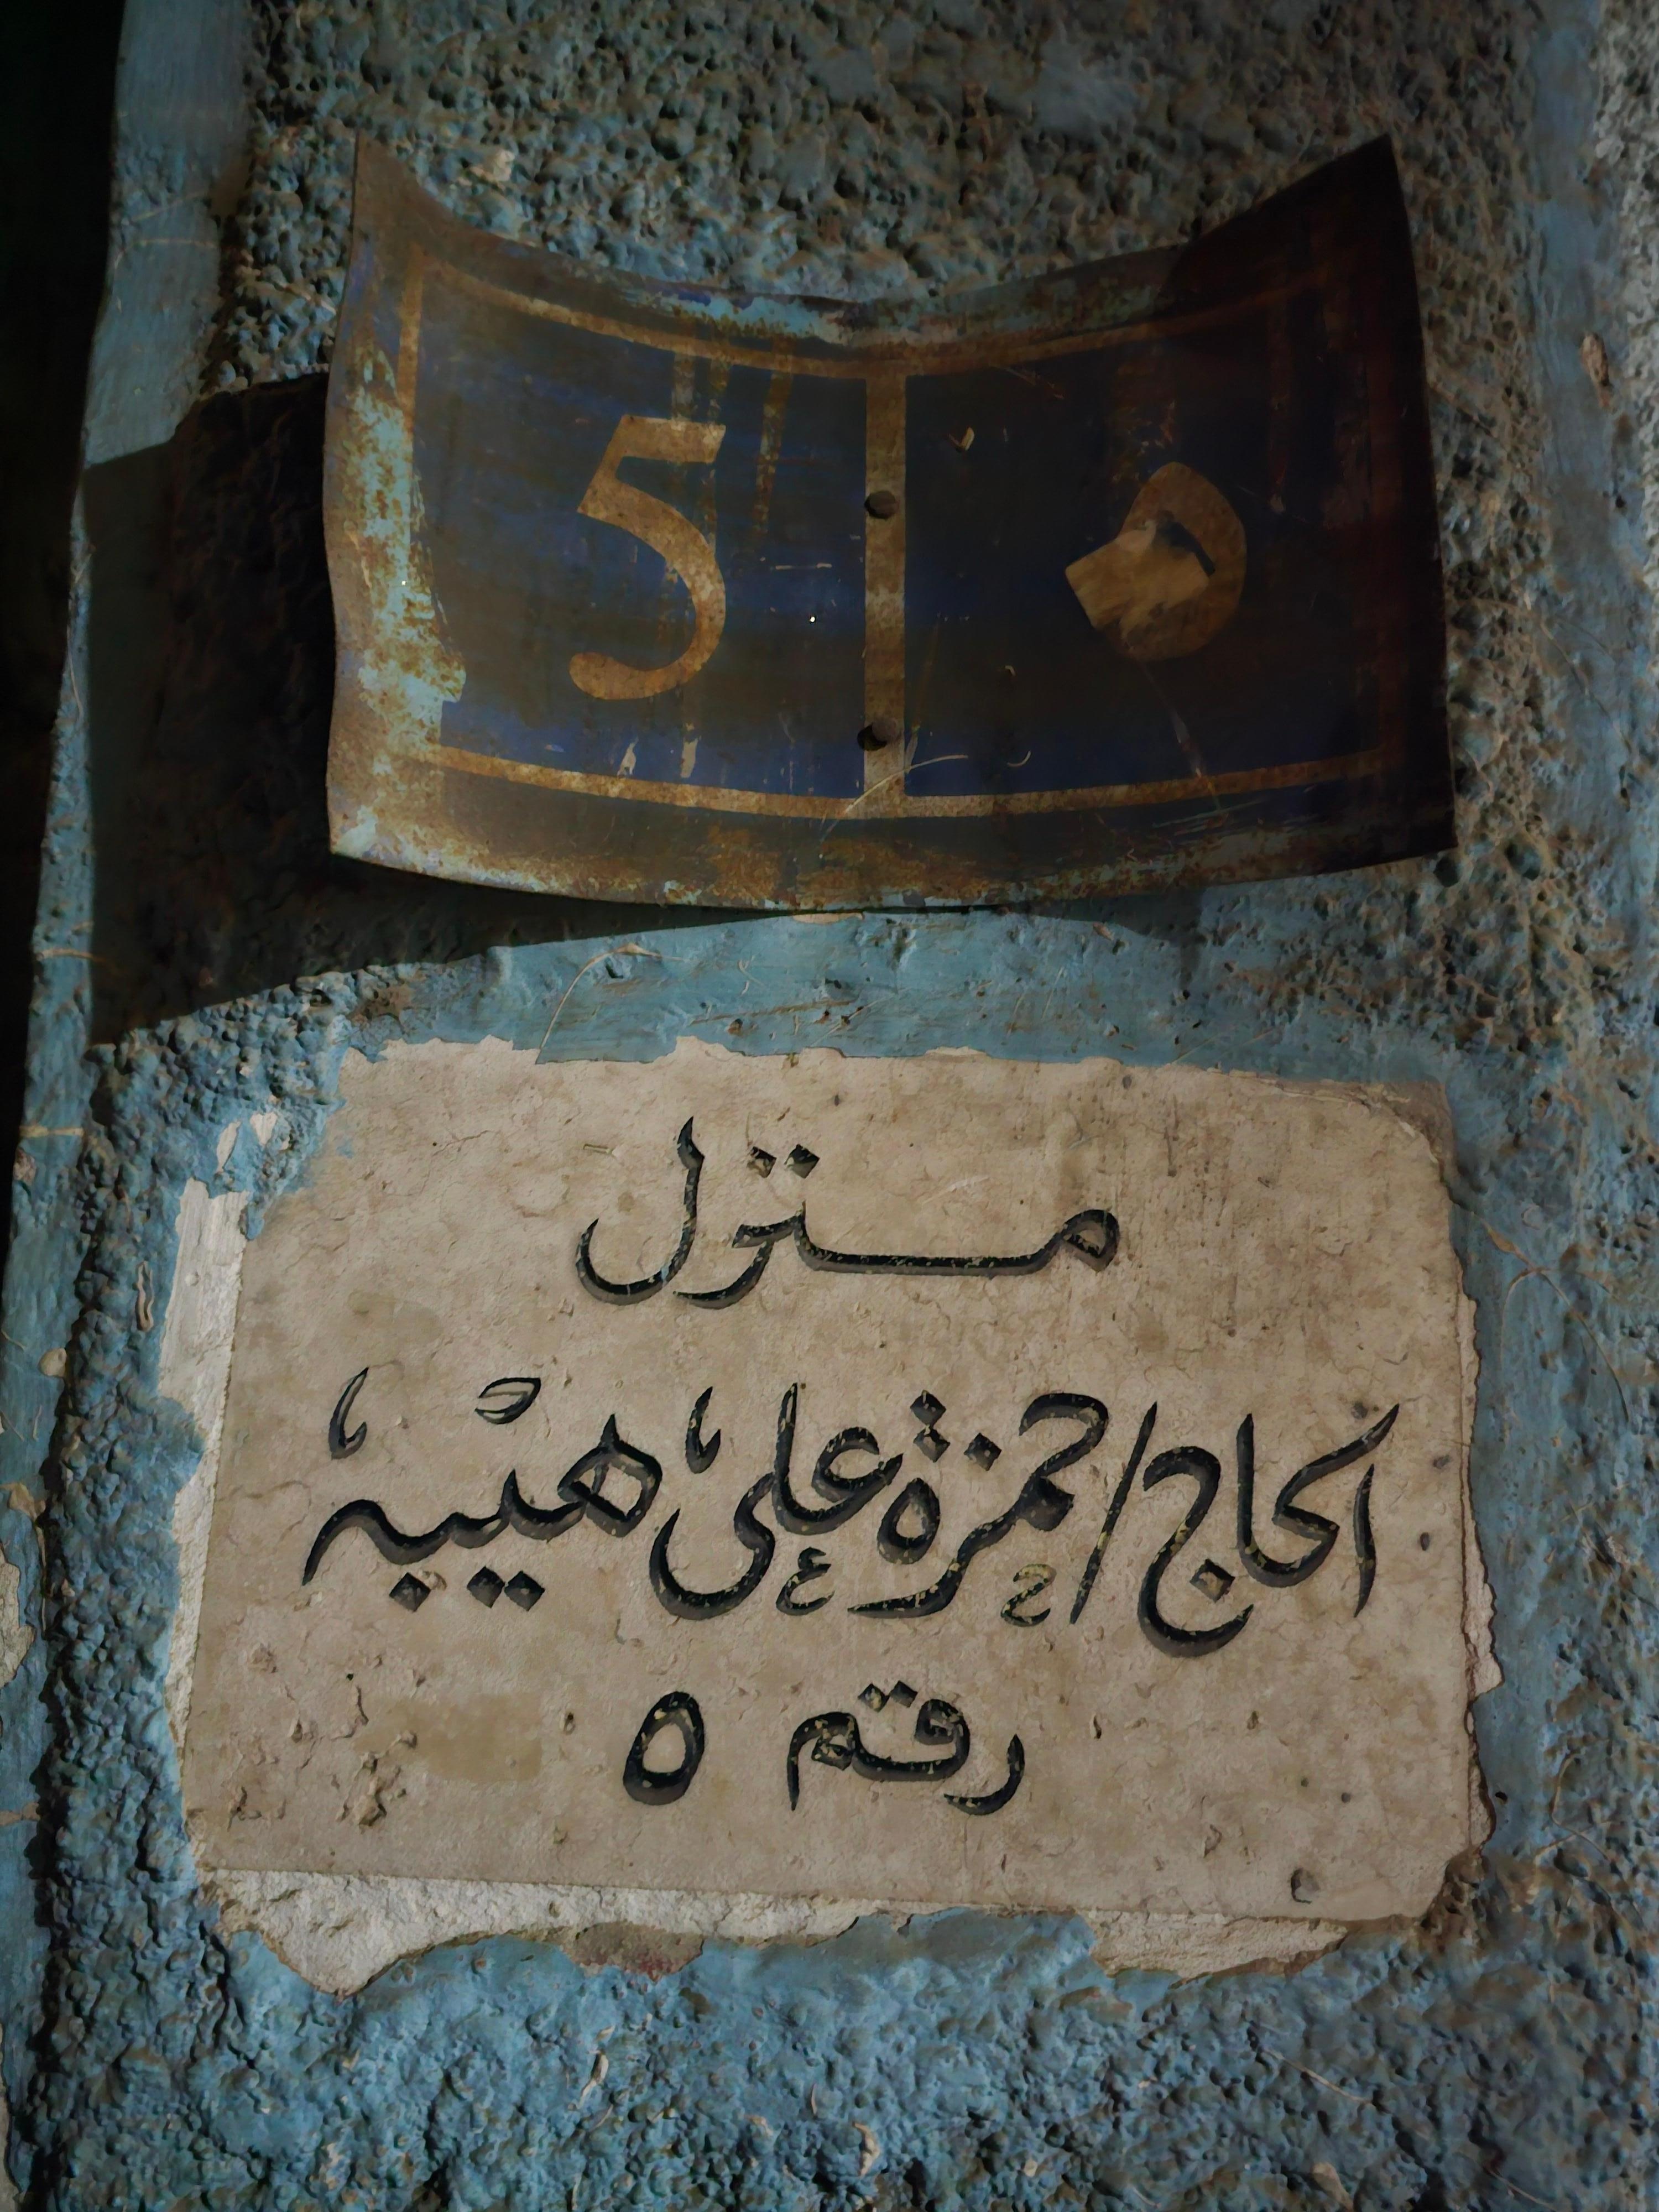 5 ٥
منزل
الحاج/حمزة على هيبه
رقم ٥